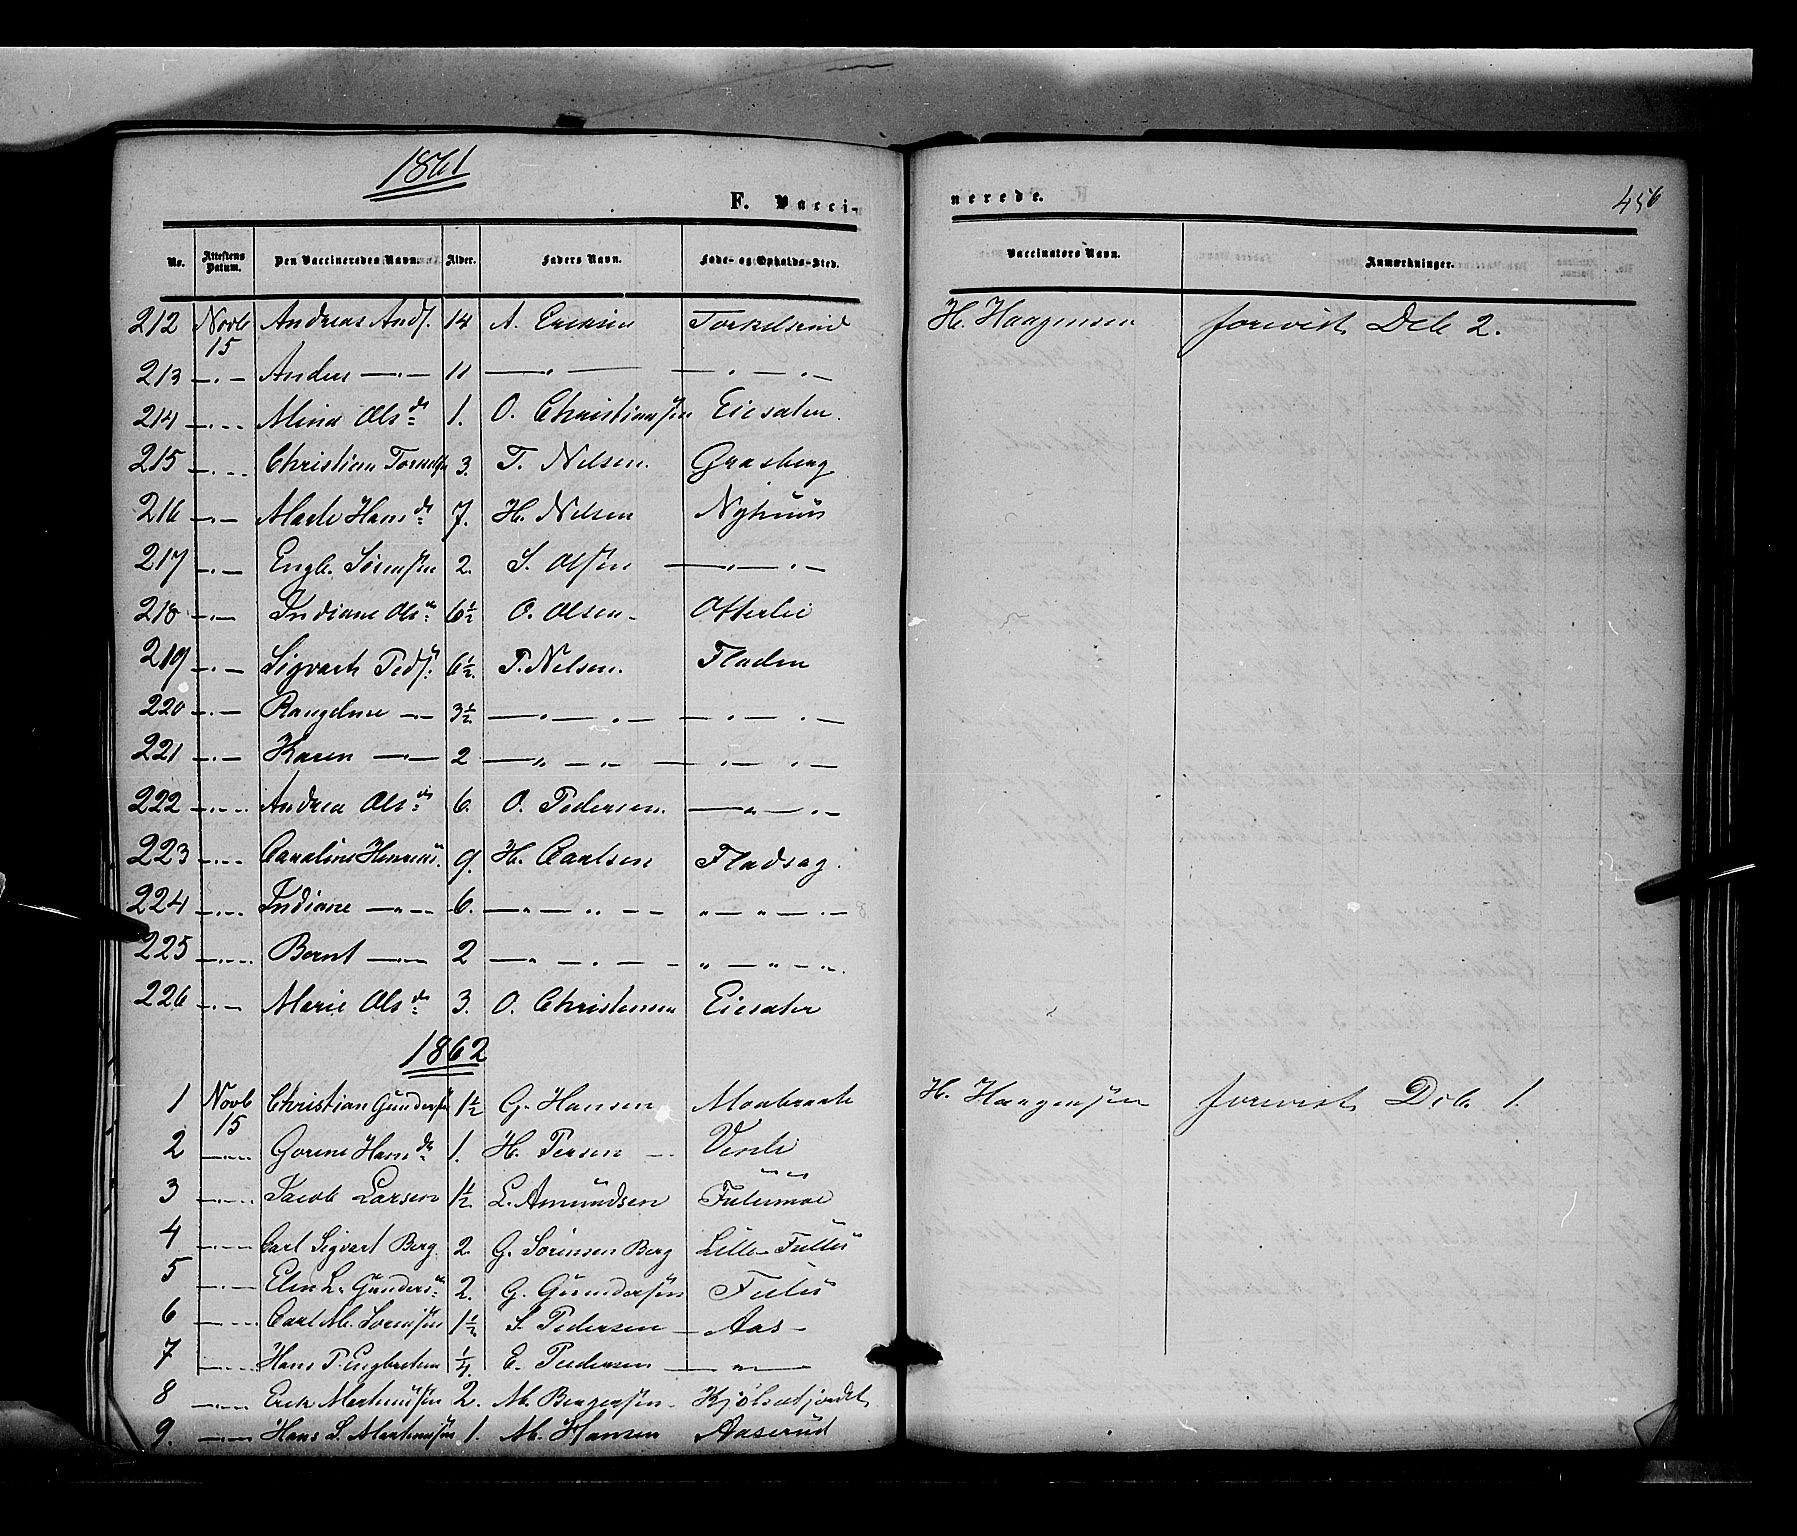 1861
F. Vacci-
nerede.
456
No. Attestens Datum. Den Vaccineredes Navn. Alder. Faders Navn. Føde- og Opholds-Sted. Vaccinators Navn. Anmærkninger.
212 Novb 15 Andreas Ands. 14 A. H. Haagensen forevist Deb 2.
213 —„— Anders —„— 11 —„— —„—
214 —„— Mina Olsdr 1. O. Christiansen Eiesaten.
215 —„— Christian 3. T. Nelsen. Grasberg
216 —„— Marte Hansdr 7. H. Nelsen Nyhuus
217 —„— Engb. Sørensen 2. S. Olsen —„—
218 —„— Indiane Olsdr 6½ O. Olsen Otterlei
219 —„— Sigvart Peds. 6½. P. Nelsen. Fladen
220 —„— —„— 3½. —„— —„—
221 —„— Karen —„— 2 —„— —„—
222 —„— Andrea Olsdr 6. O. Pedersen. —„—
223 —„— Caroline 9. H. Carlsen Fladsag.
224 —„— Indiane —„— 6. —„— —„—
225 —„— Bernt —„— 2 —„— —„—
226 —„— Marie Olsdr 3. O. Christensen Eiesater
1862
1 Novb 15 Christian Gundersen 1½ G. Hansen H. Haagensen forevist Deb. 1.
2 —„— Gorine Hansdr 1. H. Persen
3 —„— Jacob Larsen 1½. L. Amundsen
4 —„— Carl Sigvart Berg. 2. G. Sörensen Berg Lille-
5 —„— Elen L. Gundersdr 2. G. Gundersen
6 —„— Carl M. Sörensen 1½ S. Pedersen Aas
7 —„— Hans P. Engbretsen ¼. E. Pedersen —„—
8 —„— Erik Martinusen 2. M. Bergersen
9. —„— Hans S. Martinusen 1. M. Hansen Aaserud